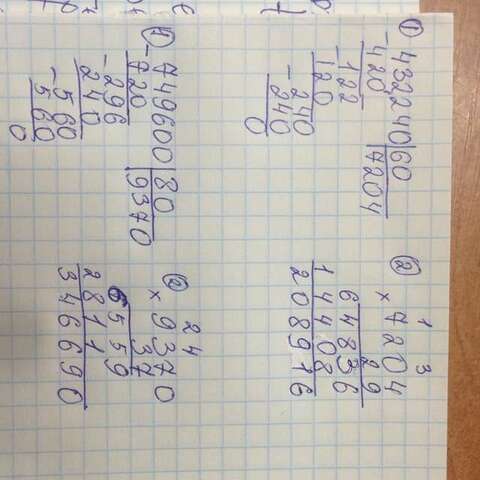 ① - 432240 | 60
420 | 7204
- 122
120
- 240
240
0
② 1 3
× 7204
29
64836
14408
208916
① - 749600 | 80
720 | 9370
- 296
240
- 560
560
0
② 24
× 9370
37
6559
2811
346690